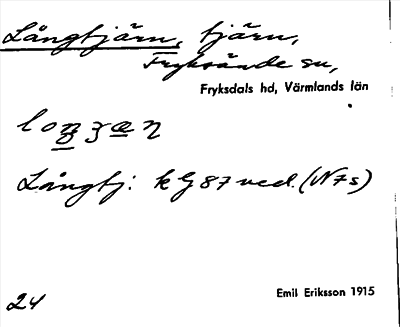 Långtjärn, tjärn,
Fryksände sn,
Fryksdals hd, Värmlands län
Långtj: k G 87 ved. (N7s)
Emil Eriksson 1915
24